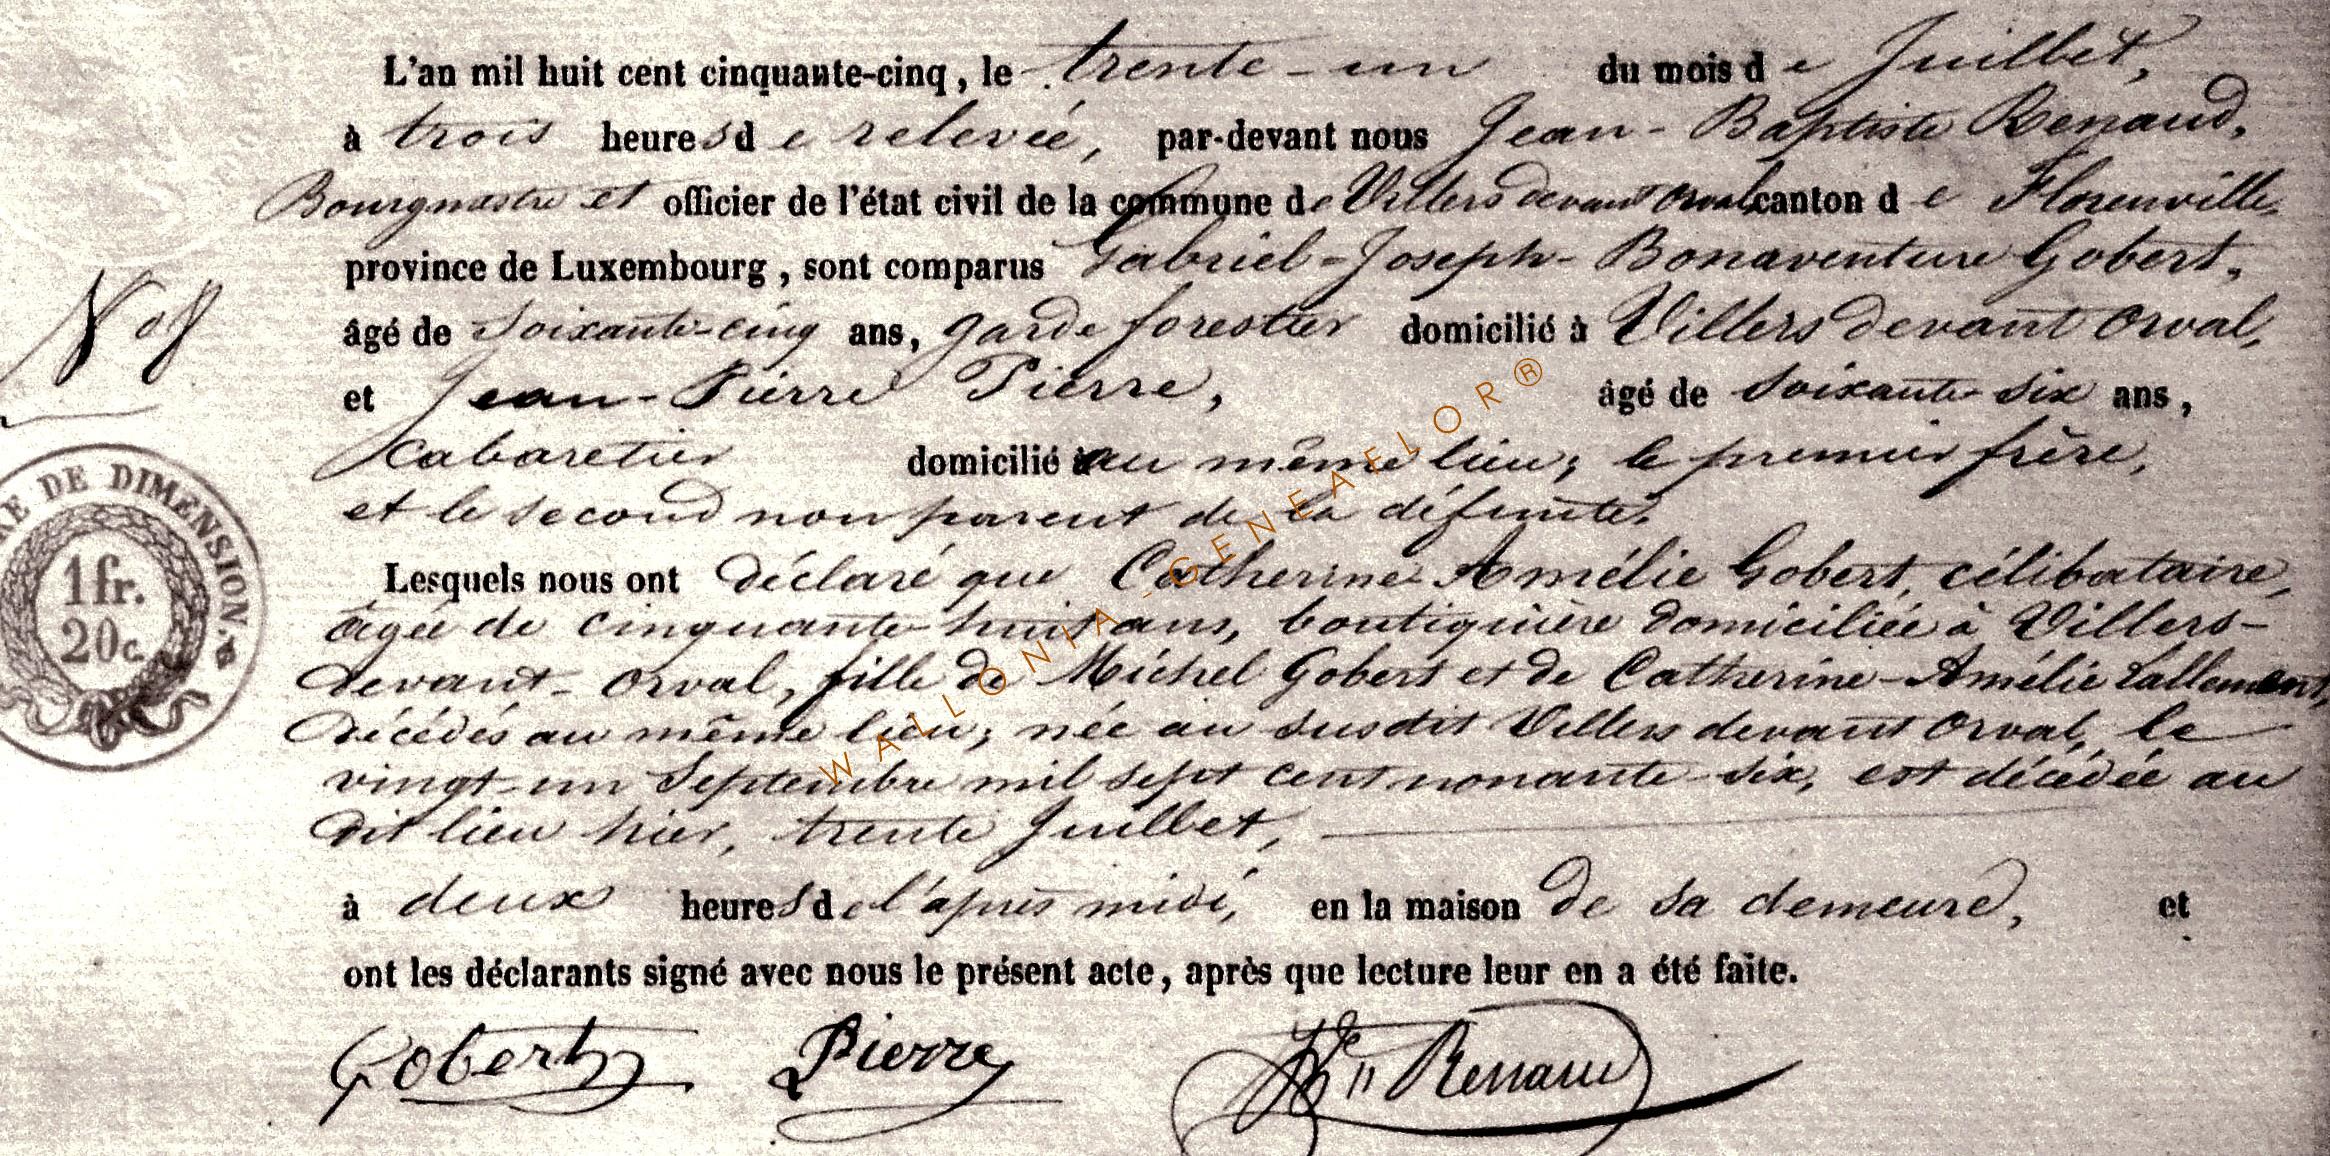 L'an mil huit cent cinquante-cinq, le trente-un du mois de Juillet,
à trois heures de relevée, par-devant nous Jean-Baptiste Renaud,
Bourgmestre et officier de l'état civil de la commune de Villers devant Orval canton de Florenville,
province de Luxembourg, sont comparus Gabriel-Joseph-Bonaventure Gobert,
N° 8
âgé de soixante-cinq ans, garde forestier domicilié à Villers devant Orval,
et Jean-Pierre Pierre, âgé de soixante-six ans,
cabaretier domicilié au même lieu; le premier frère,
et le second non parent de la défunte.
Lesquels nous ont déclaré que Catherine Amélie Gobert, célibataire,
âgée de cinquante-huit ans, boutiquière domiciliée à Villers-
devant-Orval, fille de Michel Gobert et de Catherine-Amélie Lallemant,
décédés au même lieu; née au susdit Villers devant Orval, le
vingt-un Septembre mil sept cent nonante-six, est décédée au
dit lieu hier, trente Juillet,
à deux heures de l'après midi, en la maison de sa demeure, et
ont les déclarants signé avec nous le présent acte, après que lecture leur en a été faite.
Gobert Pierre Renaud
DE DIMENSION.
1 fr.
20 c.
WALLONIA-GENEAFLOR®